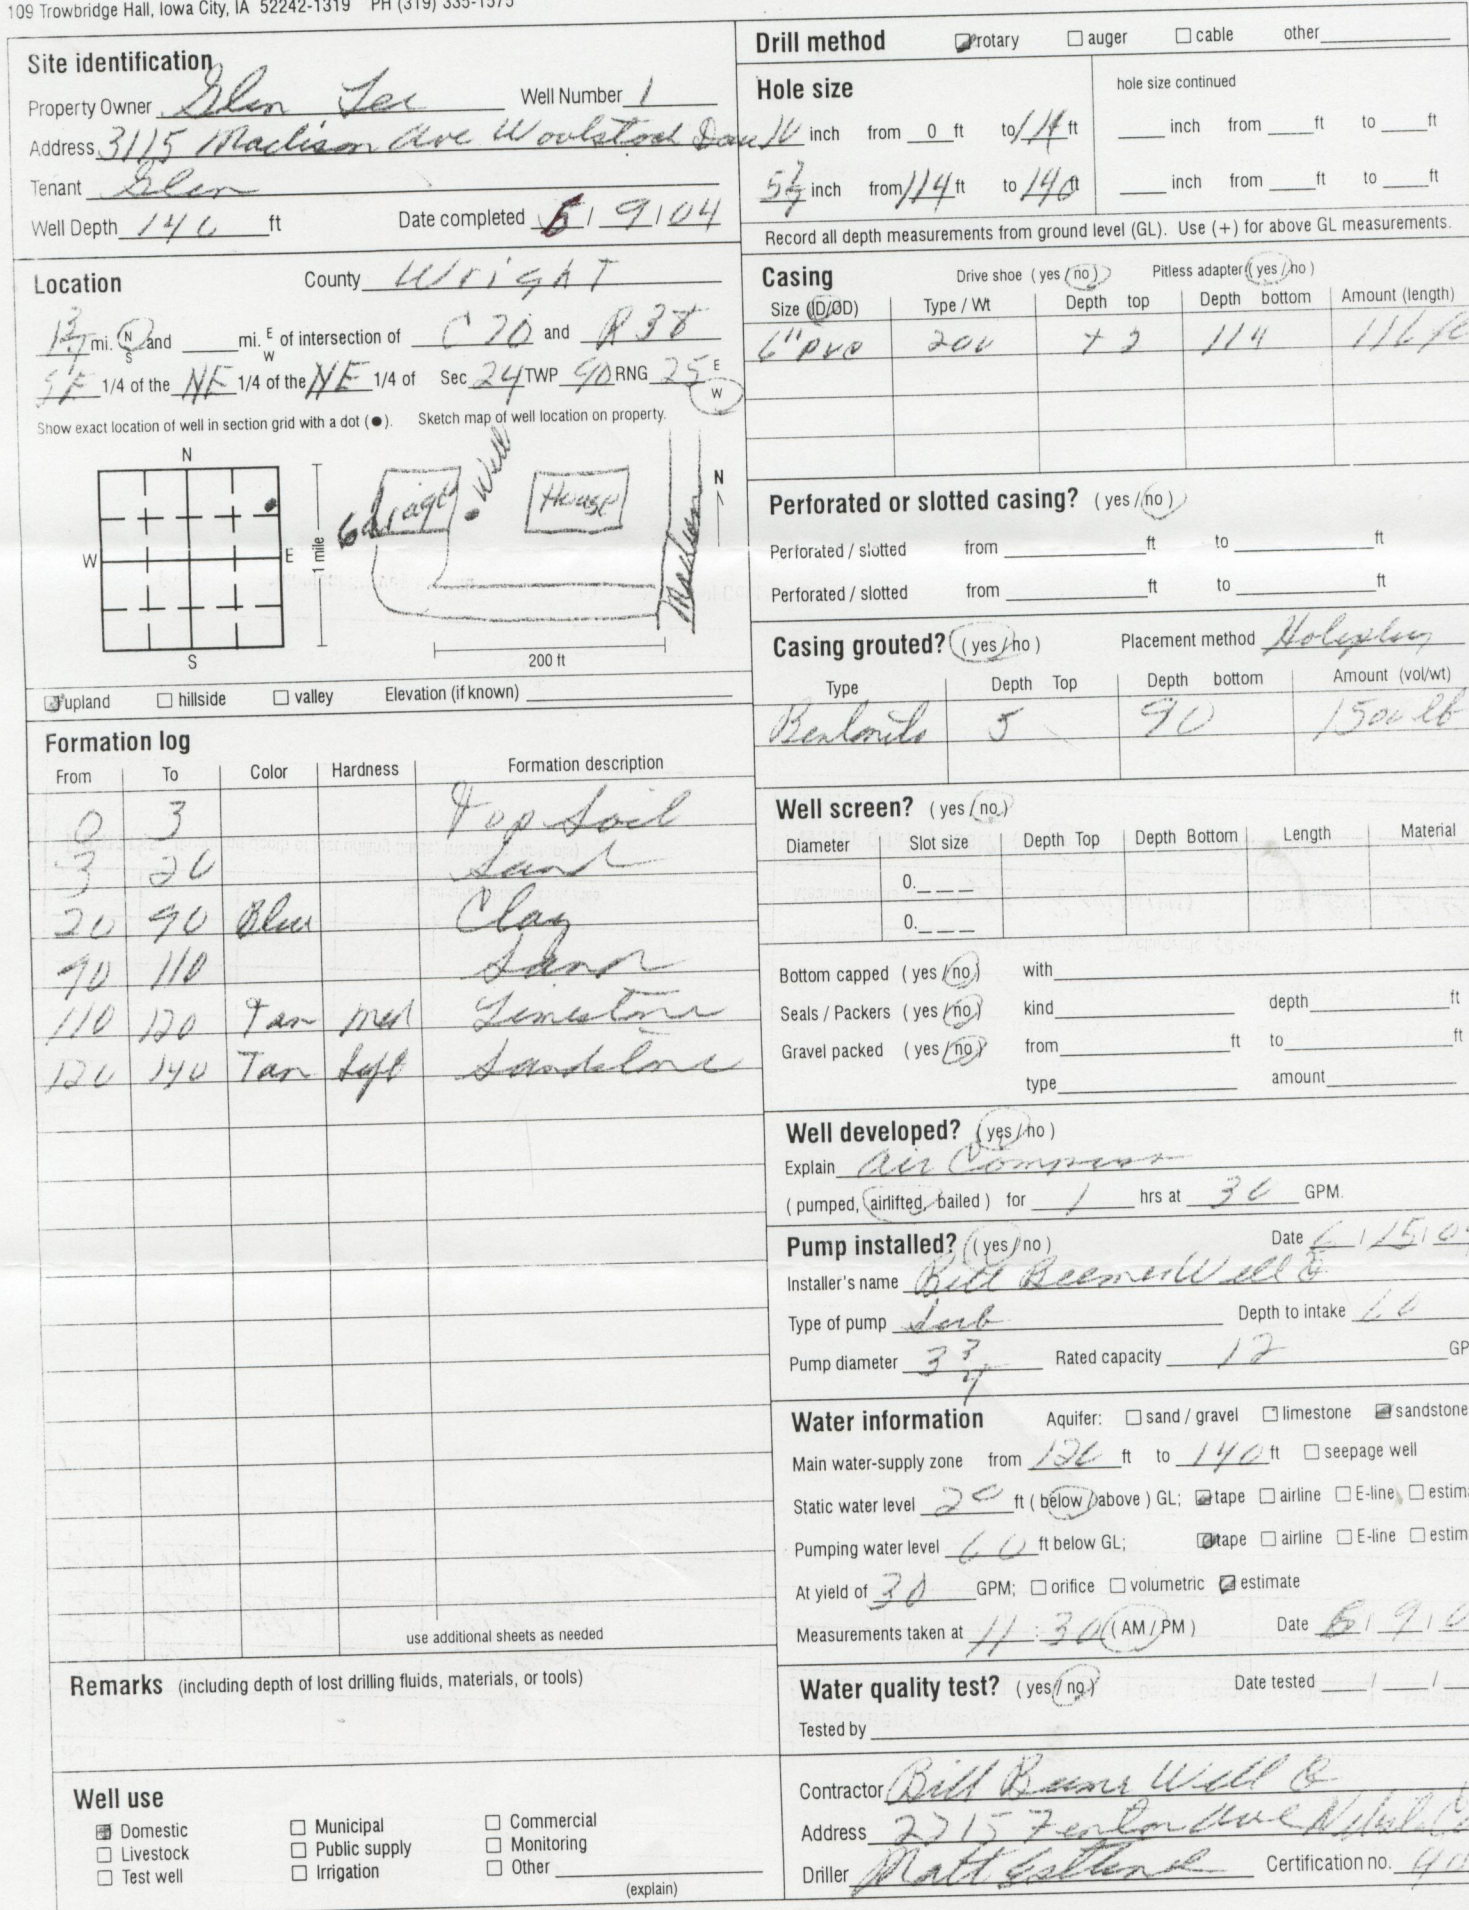 109 Trowbridge Hall, Iowa City, IA 52242-1319 PH (319) 335-1575
Site identification
Property Owner Glen Lee Well Number 1
Address 3115 Madison Ave Woolstock
Tenant Glen
Well Depth 140 ft Date completed 5/9/04
Location County Wright
1 3/4 mi. N S and ___ mi. E W of intersection of C70 and R38
SE 1/4 of the NE 1/4 of the NE 1/4 of Sec 24 TWP 90 RNG 25 E W
Show exact location of well in section grid with a dot (●). Sketch map of well location on property.
N
W E
S
1 mile
Garage
Well
House
Madison
N
200 ft
upland hillside valley Elevation (if known)
Formation log
From To Color Hardness Formation description
0 3 Top Soil
3 20 Sand
20 90 Blue Clay
90 110 Sand
110 120 Tan Med Limestone
120 140 Tan Soft Sandstone
use additional sheets as needed
Remarks (including depth of lost drilling fluids, materials, or tools)
Well use
Domestic Municipal Commercial
Livestock Public supply Monitoring
Test well Irrigation Other
(explain)
Drill method rotary auger cable other
Hole size hole size continued
10 inch from 0 ft to 114 ft ___ inch from ___ ft to ___ ft
5 7/8 inch from 114 ft to 140 ft ___ inch from ___ ft to ___ ft
Record all depth measurements from ground level (GL). Use (+) for above GL measurements.
Casing Drive shoe (yes / no) Pitless adapter (yes / no)
Size (ID/OD) Type / Wt Depth top Depth bottom Amount (length)
6" PVC 200 +2 114 116
Perforated or slotted casing? (yes / no)
Perforated / slotted from ___ ft to ___ ft
Perforated / slotted from ___ ft to ___ ft
Casing grouted? (yes / no) Placement method Holeplug
Type Depth Top Depth bottom Amount (vol/wt)
Bentonite 5 90 1500 lb
Well screen? (yes / no)
Diameter Slot size Depth Top Depth Bottom Length Material
0._ _ _
0._ _ _
Bottom capped (yes / no) with
Seals / Packers (yes / no) kind depth ft
Gravel packed (yes / no) from ft to ft
type amount
Well developed? (yes / no)
Explain Air
(pumped, airlifted, bailed) for 1 hrs at 30 GPM.
Pump installed? (yes / no) Date 6/15/0
Installer's name Bill Beemer Well Co
Type of pump Sub Depth to intake 60
Pump diameter 3 3/4 Rated capacity 12 GP
Water information Aquifer: sand / gravel limestone sandstone
Main water-supply zone from 120 ft to 140 ft seepage well
Static water level 20 ft (below / above) GL; tape airline E-line estim
Pumping water level 60 ft below GL; tape airline E-line estim
At yield of 30 GPM; orifice volumetric estimate
Measurements taken at 11:30 (AM / PM) Date 5/9/0
Water quality test? (yes / no) Date tested __/__/__
Tested by
Contractor Bill Beemer Well Co
Address 2215 Fenton Ave
Driller Matt Certification no.